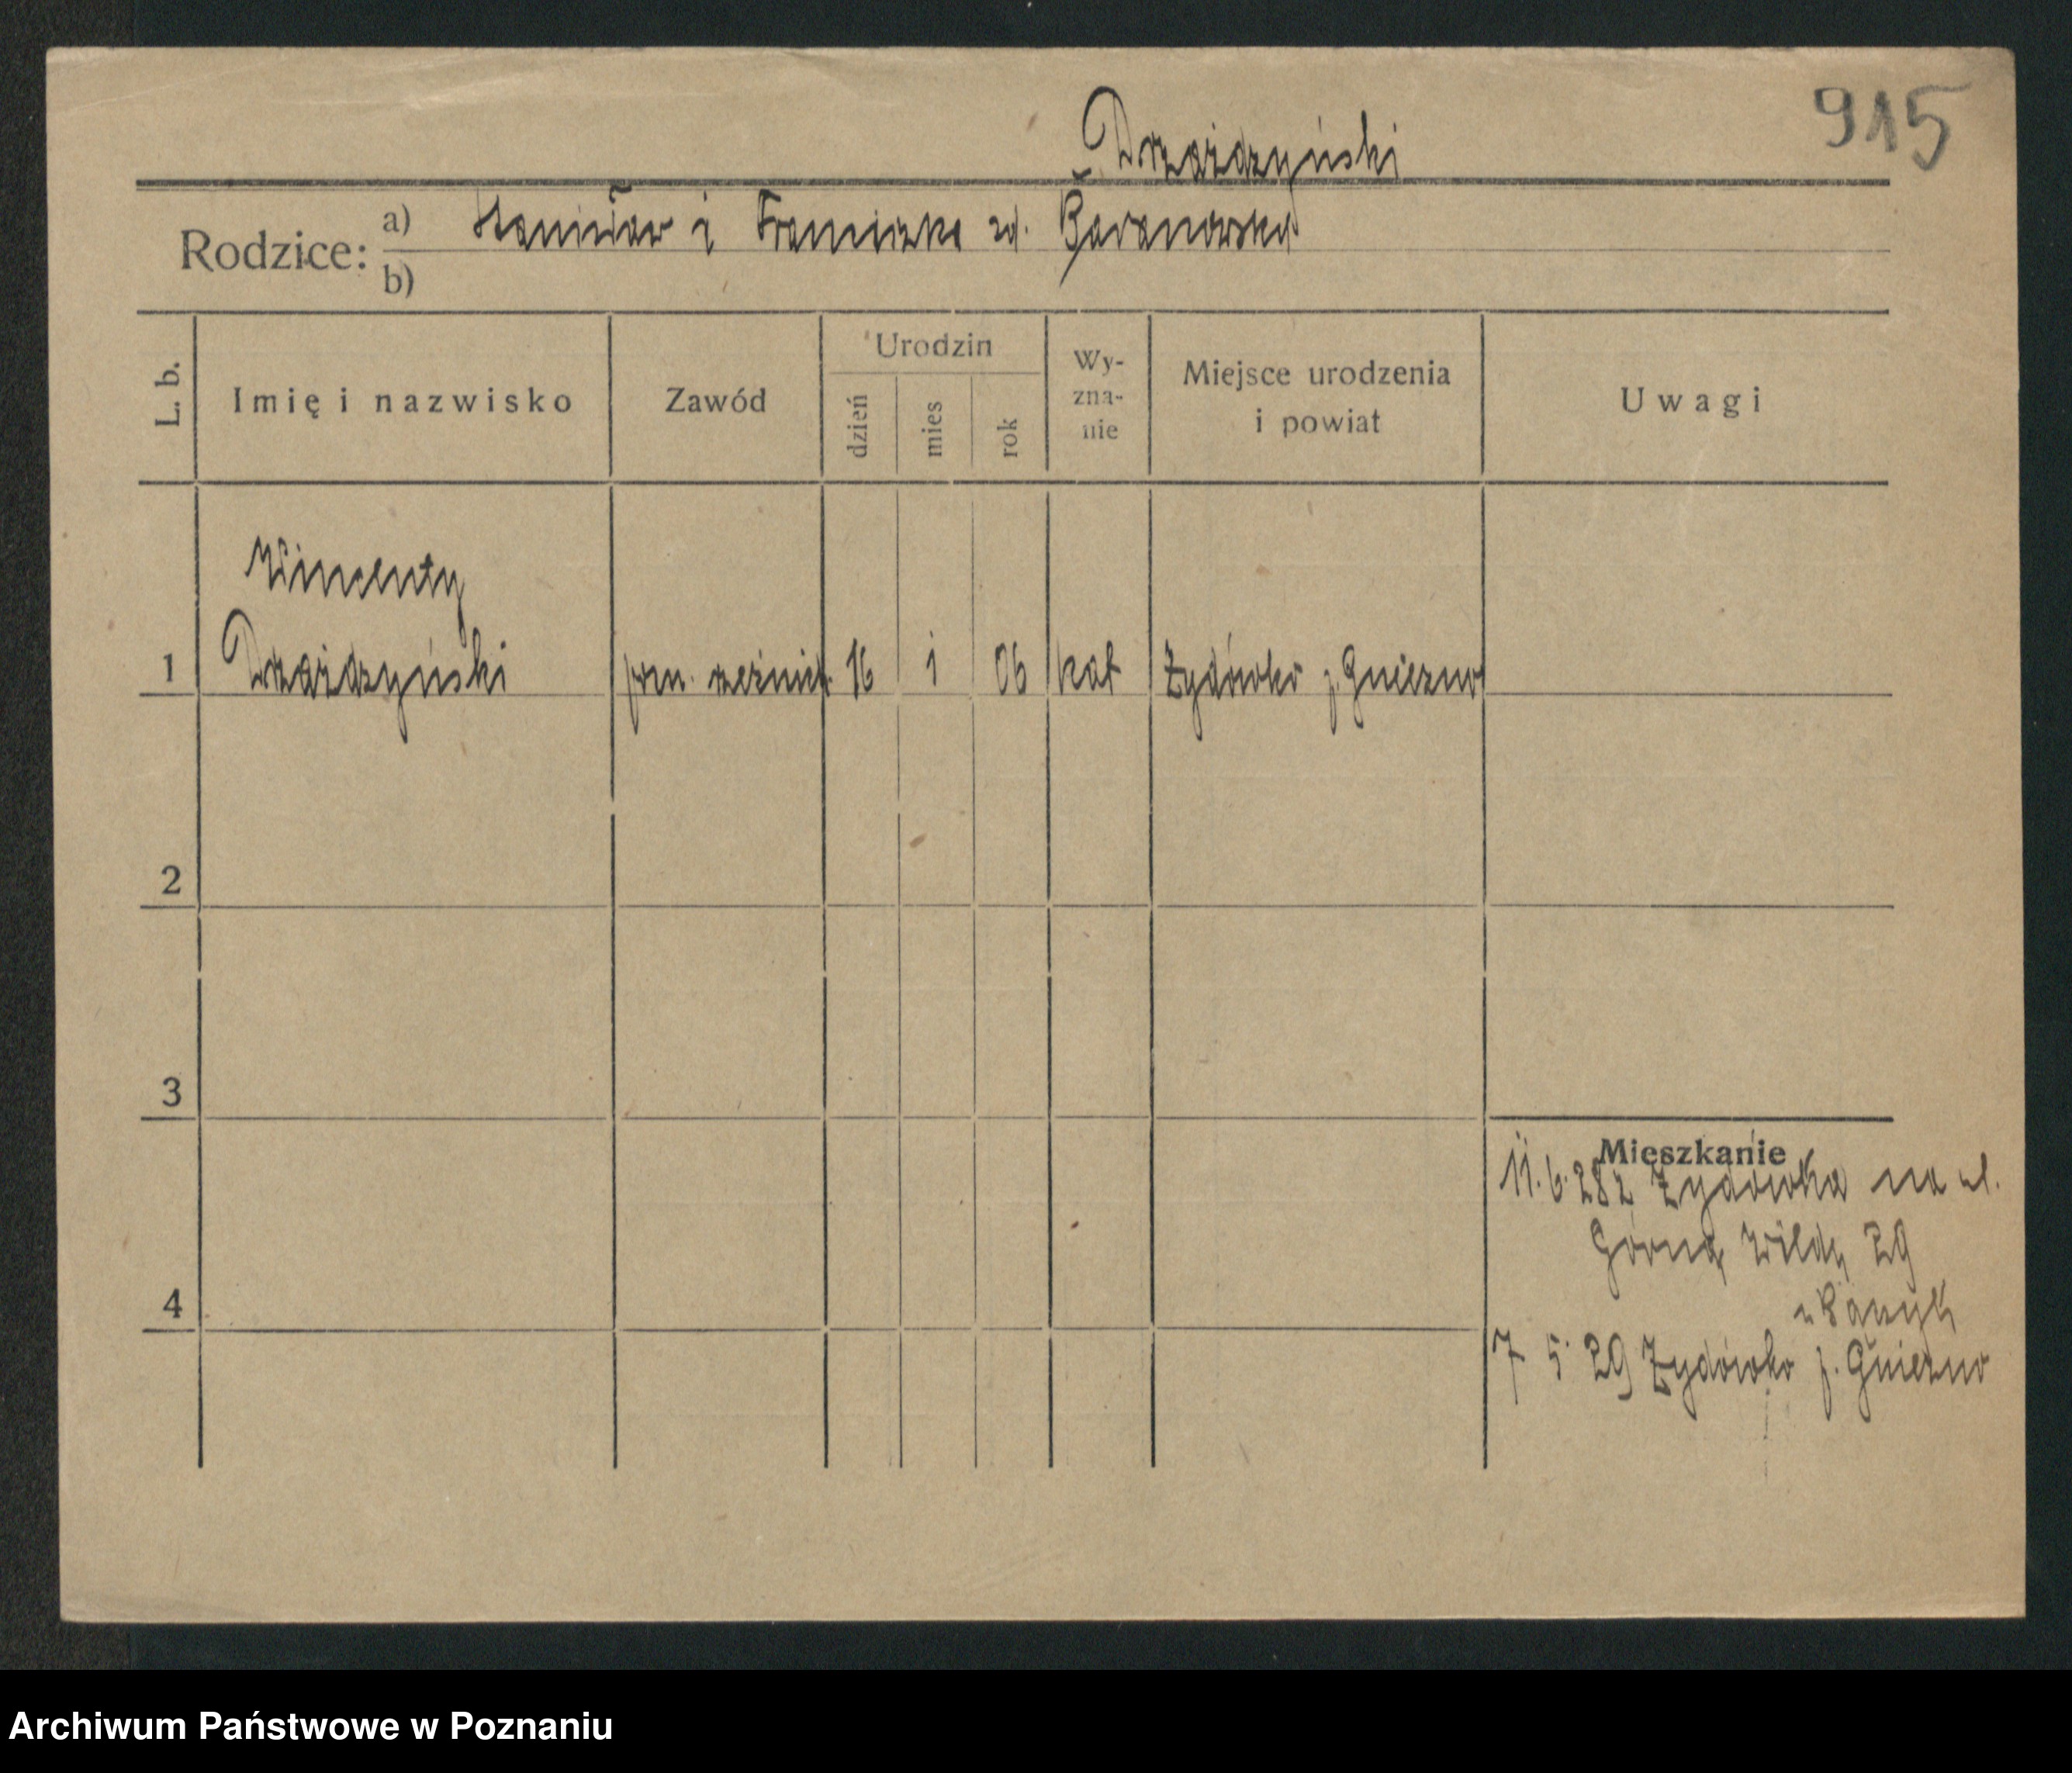 915
Drzażdzyński
Rodzice: a) Stanisław i Franciszka zd. Baranowska
b)
L. b.
Imię i nazwisko
Zawód
Urodzin
dzień
mies
rok
Wy-
zna-
nie
Miejsce urodzenia
i powiat
Uwagi
Wincenty
1 Drzażdzyński pom. rzeźnick. 16 1 06 kat Żydówko p. Gniezno
2
3
4
Mieszkanie
11.6.28 z Żydówka na ul.
Górną Wildę 29
7 5 29 Żydówko p. Gniezno
Archiwum Państwowe w Poznaniu